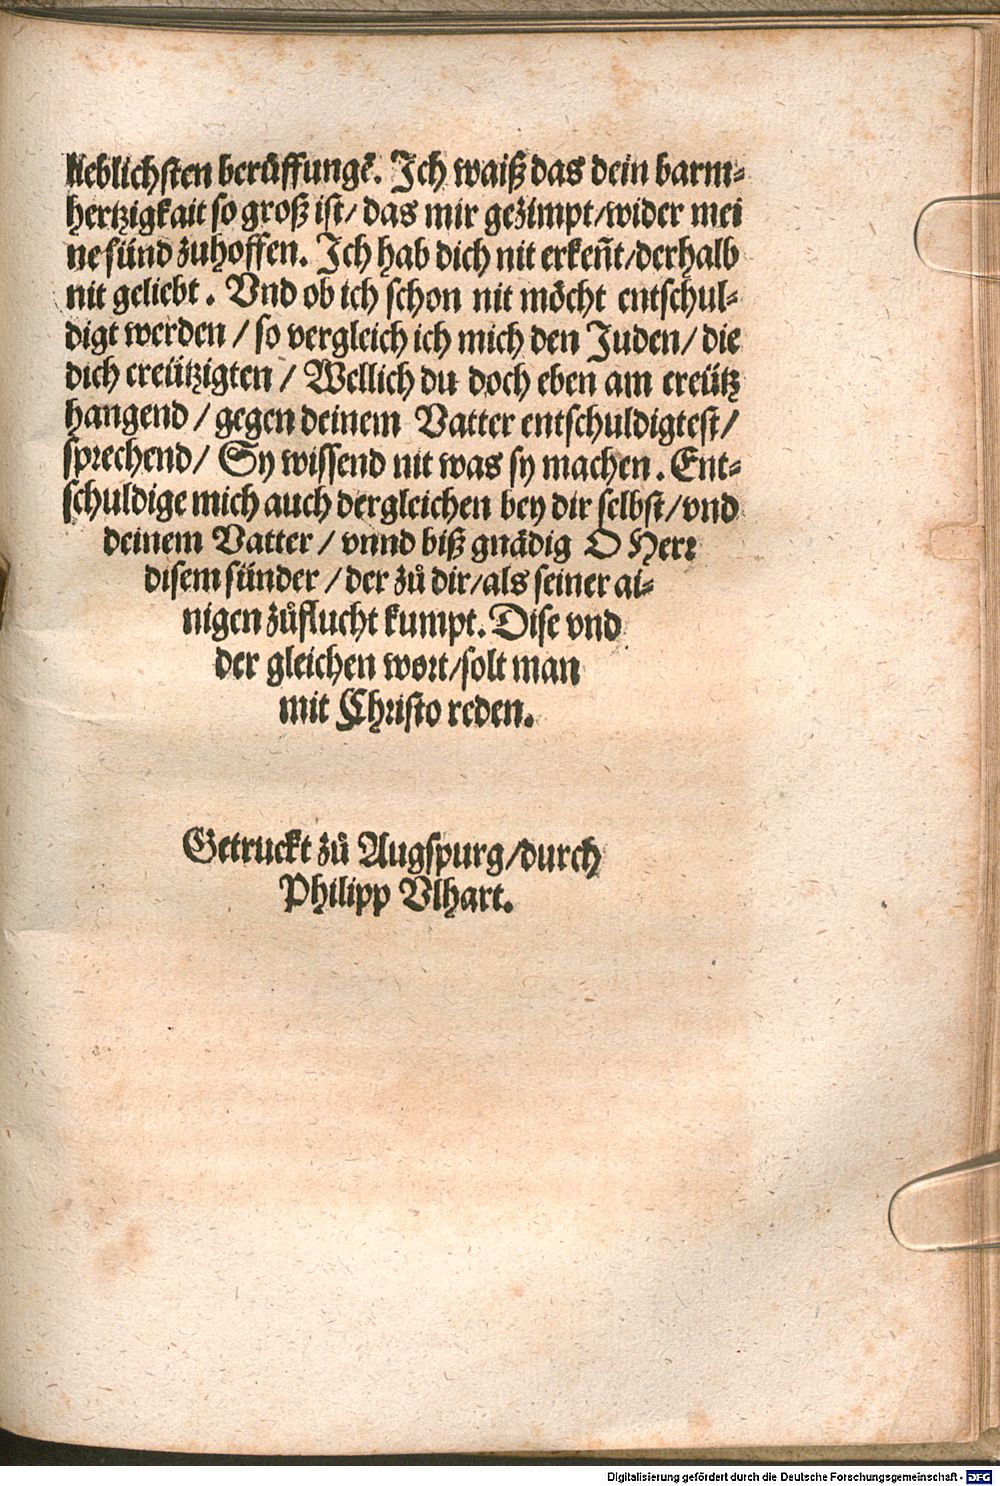 lieblichsten berůffungẽ. Ich waiß das dein barm⸗
hertzigkait so groß ist/ das mir gezimpt/wider mei
ne sünd zuhoffen. Ich hab dich nit erkeñt/derhalb
nit geliebt. Vnd ob ich schon nit möcht entschul⸗
digt werden / so vergleich ich mich den Juden/ die
dich creützigten / Wellich du doch eben am creütz
hangend / gegen deinem Vatter entschuldigtest/
sprechend/ Sy wissend nit was sy machen. Ent⸗
schuldige mich auch dergleichen bey dir selbst/vnd
deinem Vatter / vnnd biß gnädig O Herr
disem sünder / der zů dir/als seiner ai⸗
nigen zůflucht kumpt. Dise vnd
der gleichen wort/solt man
mit Christo reden.
Getruckt zů Augspurg/durch
Philipp Vlhart.
Digitalisierung gefördert durch die Deutsche Forschungsgemeinschaft - DFG